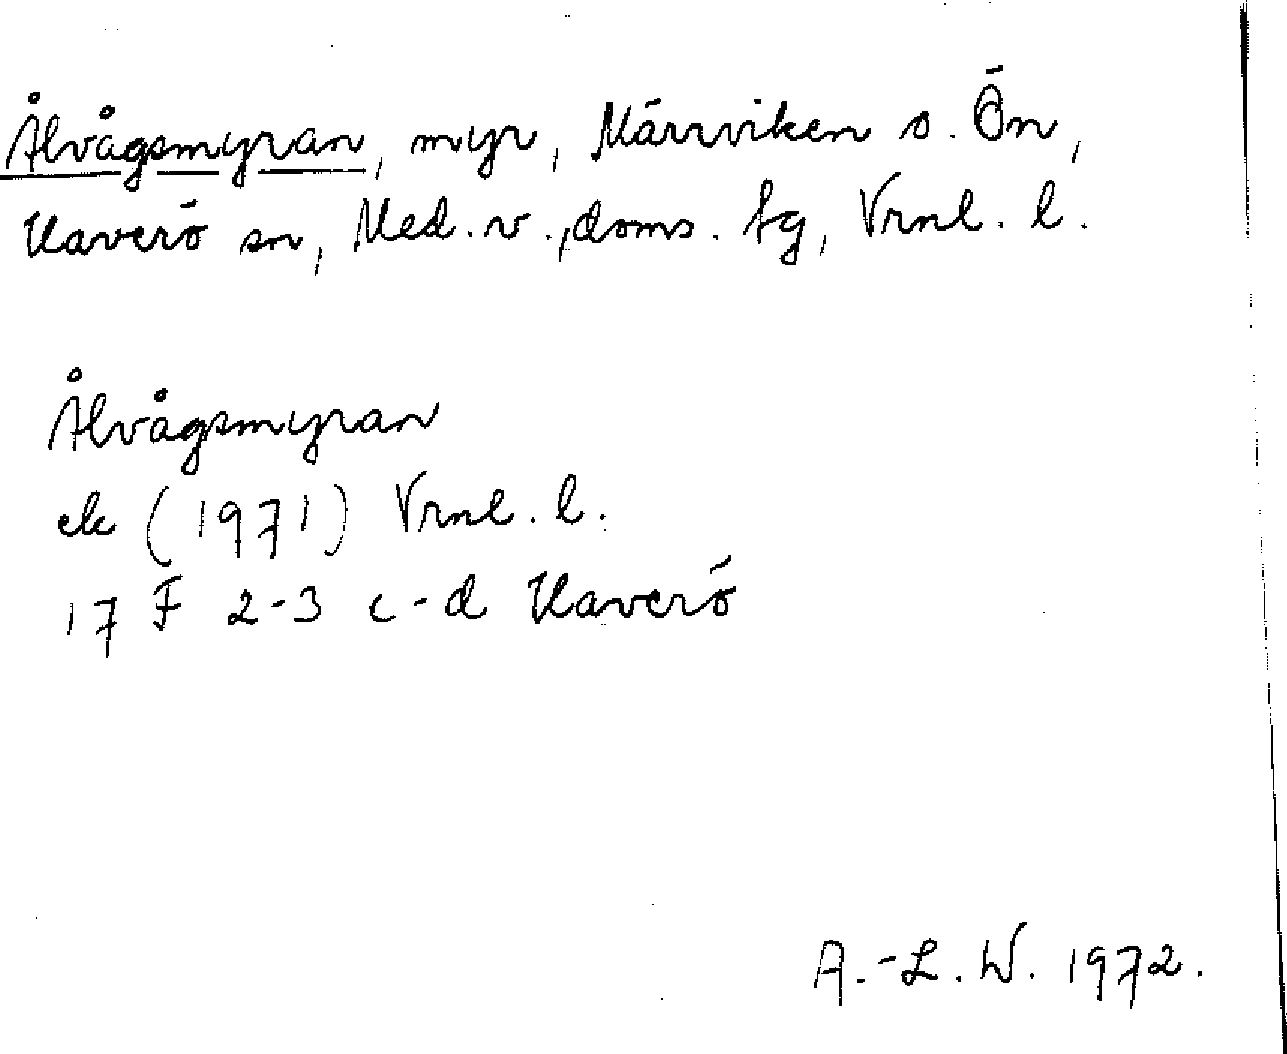 Ålvågsmyran, myr, Märrviken s. Ön,
Haverö sn, Med. v., doms. tg, Vrnl. l.
Ålvågsmyran
ek (1971) Vrnl. l.
17 F 2-3 c-d Haverö
A.-L. W. 1972.